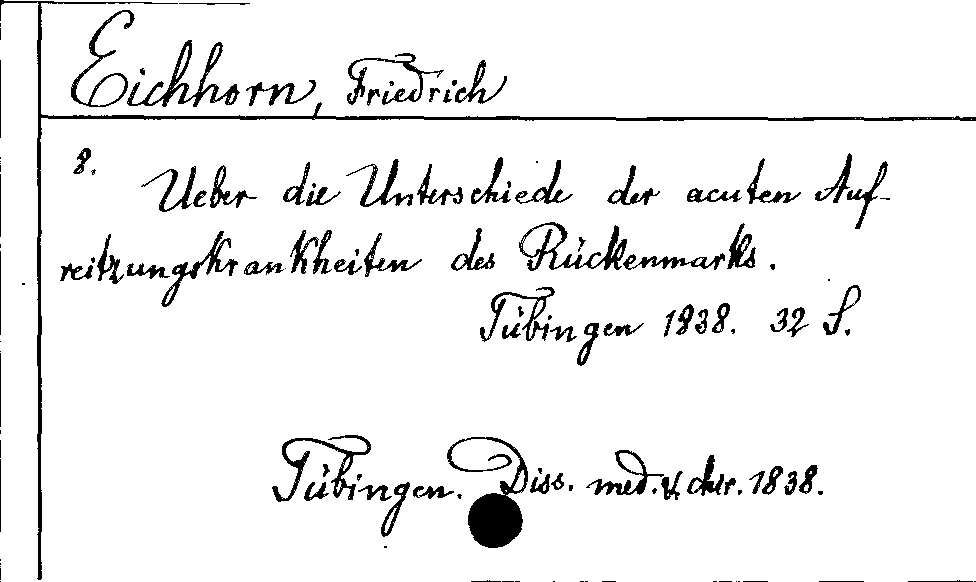 Eichhorn, Friedrich
8.
Ueber die Unterschiede der acuten Auf-
reitzungskrankheiten des Rückenmarks.
Tübingen 1838. 32 S.
Tübingen. Diss. med. & chir. 1838.